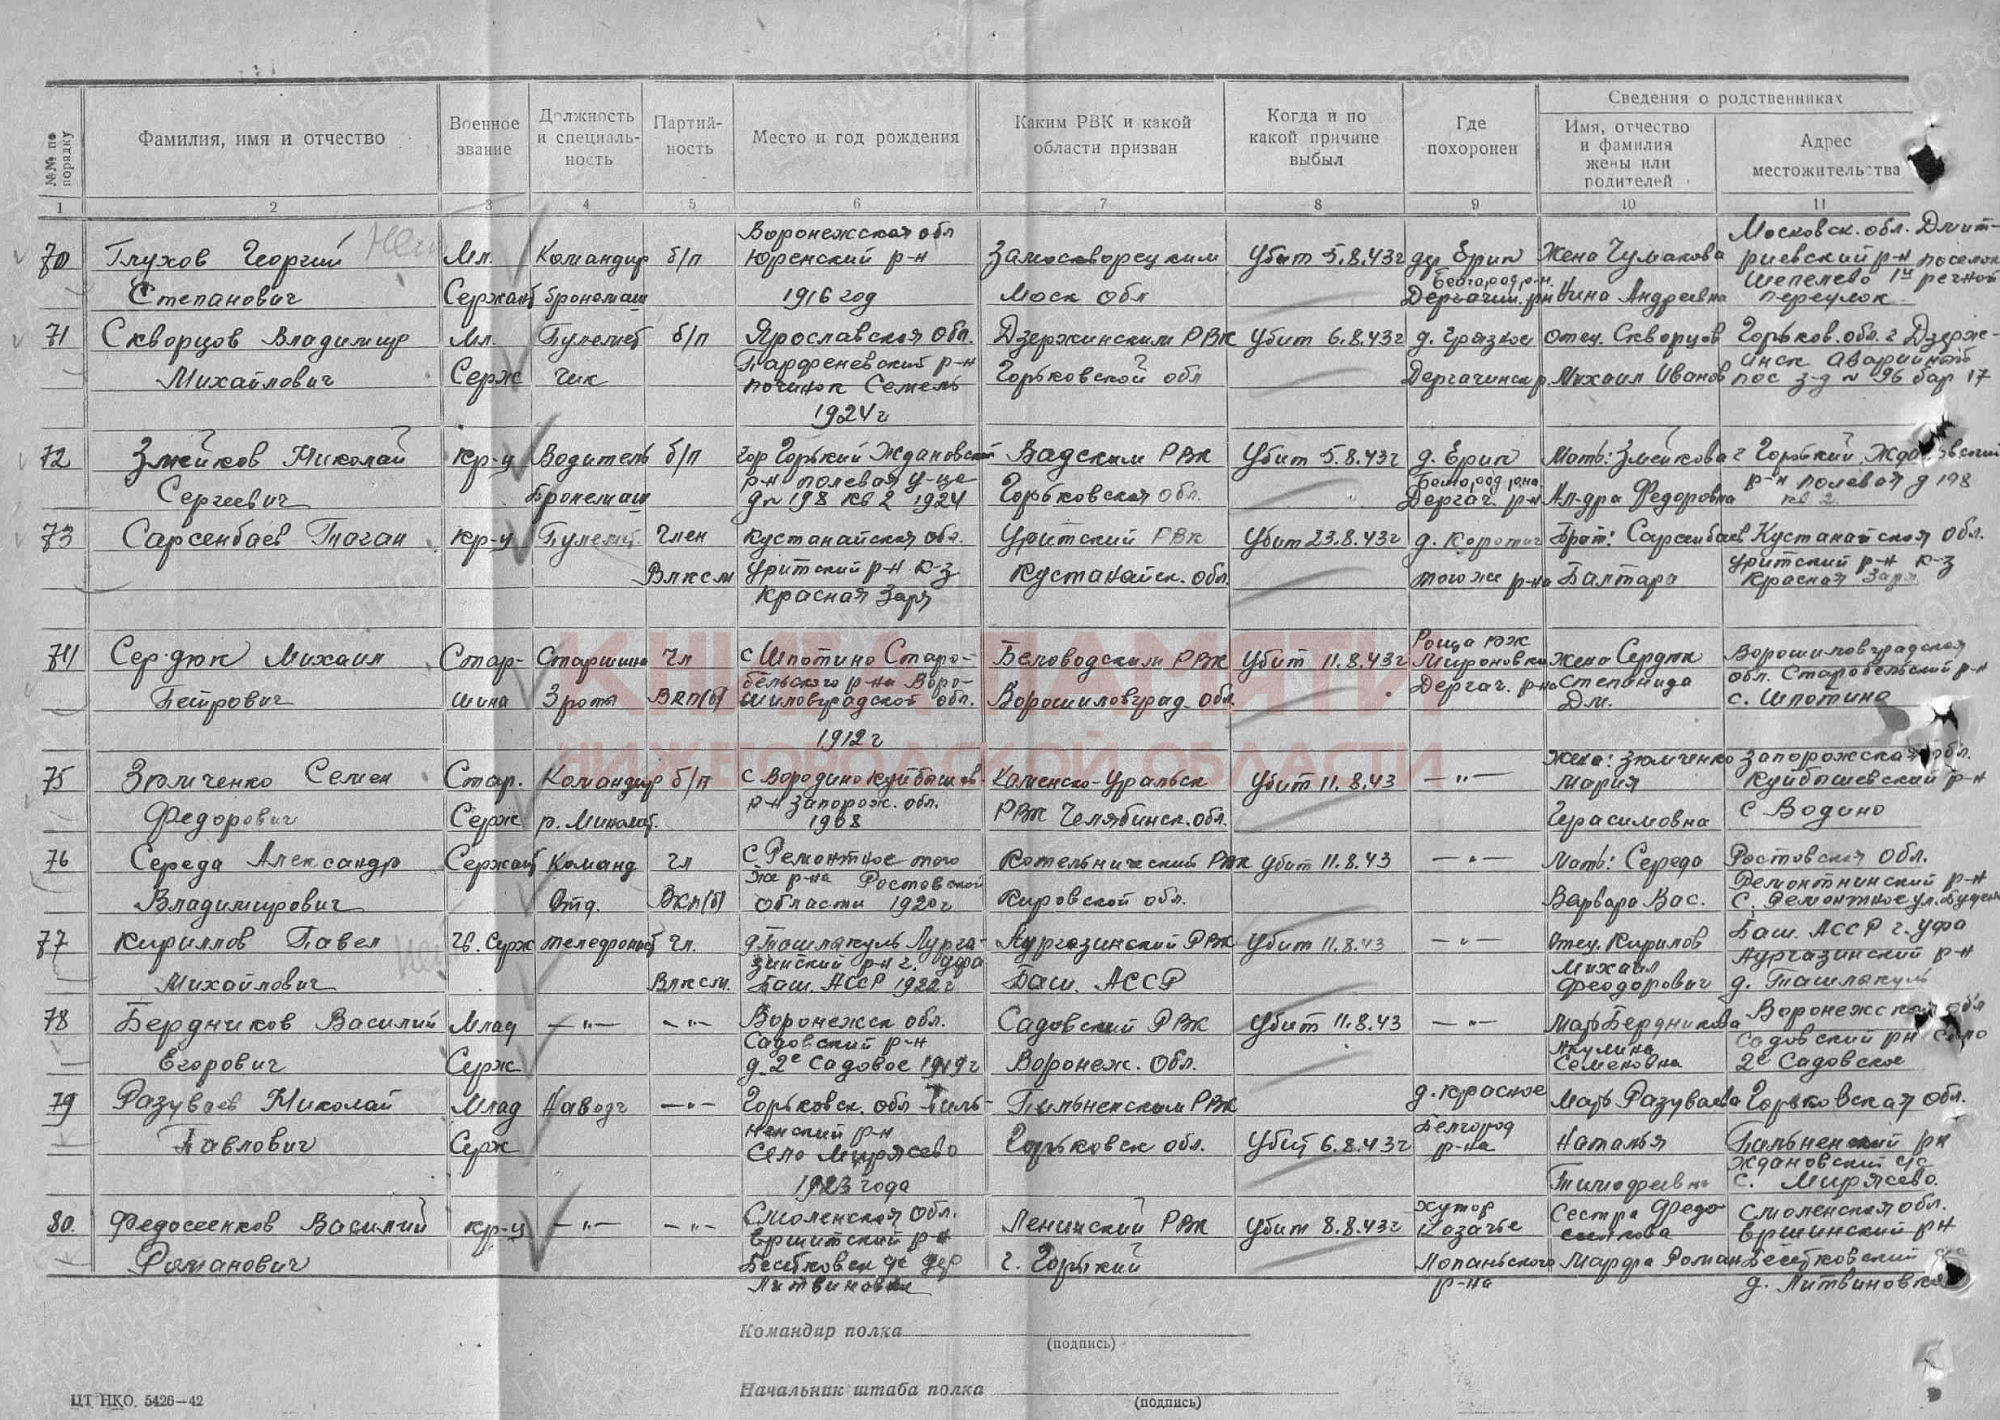 №№ по порядку
Фамилия, имя и отчество
Военное звание
Должность и специаль-
ность
Партий-
ность
Место и год рождения
Каким РВК и какой
области призван
Когда и по
какой причине
выбыл
Где
похоронен
Сведения о родственниках
Имя, отчество
и фамилия
жены или
родителей
Адрес
местожительства
1 2 3 4 5 6 7 8 9 10 11
70 Глухов Георгий Степанович
Мл. Сержант
Командир бронемаш
б/п
Воронежская обл
Юренский р-н
1916 год
Замоскворецким
Моск обл
Убит 5.8.43г
дер Ерик
Белгород р-н.
Дергачин. р-н
Жена Чумакова
Нина Андреевна
Московск. обл. Дмит-
риевский р-н поселок
Шепелево 1й речной
переулок
71 Скворцов Владимир Михайлович
Мл. Серж
Пулемет чик
б/п
Ярославская обл.
Парфеневский р-н
починок Семель
1924 г
Дзержинским РВК
Горьковской обл
Убит 6.8.43г
д. Грязное
Дергачинск р
Отец. Скворцов
Михаил Иванов
Горьков. обл. г Дзерж-
инск Аварийный
пос з-д № 96 бар 17
72 Змейков Николай Сергеевич
Кр-ц
Водитель Бронемаш
б/п
гор Горький Ждановский
р-н полевая у-це
д № 198 кв 2 1924
Вадским РВК
Горьковская обл.
Убит 5.8.43г
д. Ерик
Белгород р-на
Дергач. р-н
Мать: Змейкова
Ал-дра Федоровна
г Горький, Ждановский
р-н полевая д 198
кв 2.
73 Сарсенбаев Тоган
Кр-ц
Пулемет.
Член Влксм
Кустанайская обл.
Урицкий р-н к-з
Красная Заря
Урицкий РВК
Кустанайск. обл.
Убит 23.8.43г
д. Коротич
того же р-на
Брат: Сарсенбаев
Балтара
Кустанайская обл.
Урицкий р-н к-з
Красная Заря
74 Сердюк Михаил Петрович
Стар-
шина
Старшина
3 роты
Чл ВКП(б)
с Шпотино Старо-
бельского р-на Воро-
шиловградской обл.
1912 г
Беловодским РВК
Ворошиловград. обл.
Убит 11.8.43г
Роща юж
Мироновки
Дергач. р-на
Жена Сердюк
Степанида
Дм.
Ворошиловградская
обл. Старобельский р-н
с. Шпотина
75 Зюмченко Семен Федорович
Стар. Серж
Командир
р. Миномет.
б/п
с Вородино Куйбышев.
р-н Запорож. обл.
1908
Каменско-Уральск
РВК Челябинск. обл.
Убит 11.8.43
— " —
Жена: Зюмченко
Мария
Герасимовна
Запорожская обл.
Куйбышевский р-н
с Водино
76 Середа Александр Владимирович
Сержант
Команд Отд.
Чл ВКП(б)
С. Ремонтное того
же р-на Ростовской
области 1920 г
Котельнический РВК
Кировской обл.
Убит 11.8.43
— " —
Мать: Середа
Варвара Вас.
Ростовская обл.
Ремонтнинский р-н
С. Ремонтное ул. Буден
77 Кириллов Павел Михайлович
Гв. Серж
телефонист
Чл. Влксм.
д Ташлакуль Аурга-
зинский р-н г. Уфа
Баш. АССР 1922 г
Аургазинский РВК
Баш. АССР
Убит 11.8.43
— " —
Отец. Кирилов
Михаил
Феодорович
Баш. АССР г. Уфа
Аургазинский р-н
д. Ташлакуль
78 Бердников Василий Егорович
Млад Серж
— " —
— " —
Воронежск обл.
Садовский р-н
д. 2е Садовое 1919 г
Садовский РВК
Воронеж. Обл.
Убит 11.8.43
— " —
Мать Бердникова
Акулина
Семеновна
Воронежской обл
Садовский р-н село
2е Садовское
79 Разуваев Николай Павлович
Млад Серж
Наводч
— " —
Горьковск. обл Пиль-
ненский р-н
Село Мирясево
1923 года
Пильненским РВК
Горьковск обл.
Убит 6.8.43г
д. Красное
Белгород
р-на
Мать Разуваева
Наталья
Тимофеевна
Горьковская обл.
Пильненский рн
Ждановский с/с
с. Мирясево.
80. Федосеенков Василий Романович
кр-ц
— " —
— " —
Смоленская обл.
Ершитский р-н
Беседковск с/с дер
Литвиновка
Ленинский РВК
г. Горький
Убит 8.8.43г
хутор
Казачье
Лопаньского
р-на
Сестра Федо
сеенкова
Марфа Роман
Смоленская обл.
Ершинский рн
д. Литвиновка
КНИГА ПАМЯТИ
НИЖЕГОРОДСКОЙ ОБЛАСТИ
Командир полка
(подпись)
Начальник штаба полка
(подпись)
ЦТ НКО. 5426—42